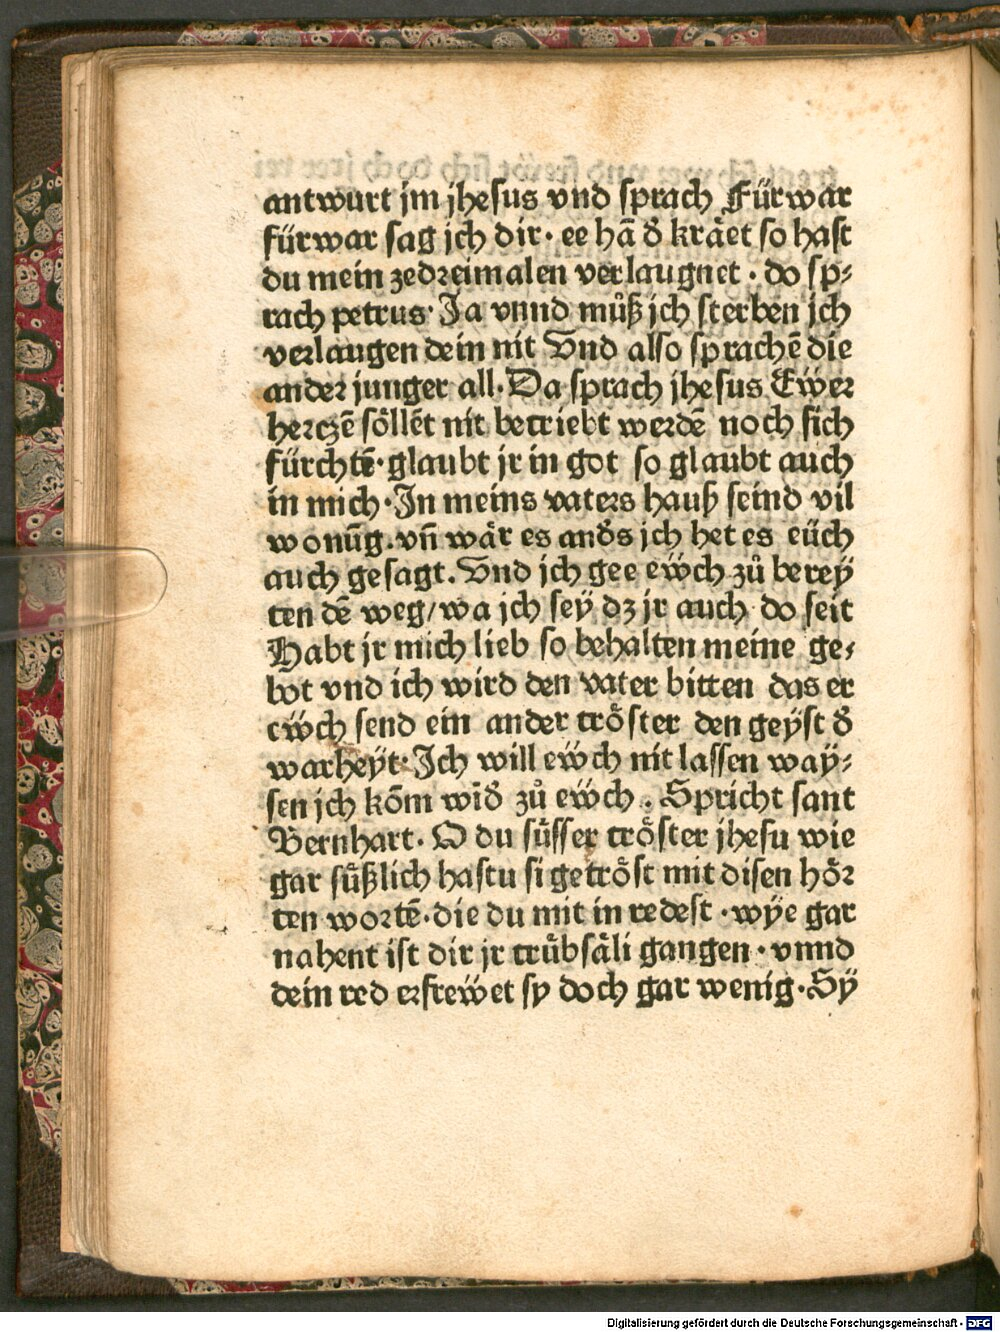 antwurt jm jhesus vnd sprach Fürwar
fürwar sag jch dir· ee hā d̄ kräet so hast
du mein zedreimalen verlaugnet · do sp⸗
rach petrus· Ja vnnd můß jch sterben jch
verlaugen dein nit Vnd also sprachē die
ander junger all· Da sprach jhesus Ewer
herczē söllēt nit betriebt werdē noch sich
fürchtē· glaubt jr in got so glaubt auch
in mich· In meins vaters hauß seind vil
wonūg. vn̄ wär es and̄s jch het es eüch
auch gesagt. Vnd jch gee eẅch zů bereÿ
ten dē weg/ wa jch seÿ dz jr auch do seit
Habt jr mich lieb so behalten meine ge⸗
bot vnd ich wird den vater bitten das er
eẅch send ein ander tröster den geÿst d̄
warheÿt· Ich will eẅch nit lassen waÿ⸗
sen jch kōm wid̄ zů eẅch . Spricht sant
Bernhart· O du süsser tröster jhesu wie
gar süßlich hastu si getröst mit disen hör
ten wortē· die du mit in redest · wÿe gar
nahent ist dir jr trübsäli gangen · vnnd
dein red erfreẅet sy doch gar wenig· Sÿ
Digitalisierung gefördert durch die Deutsche Forschungsgemeinschaft - DFG